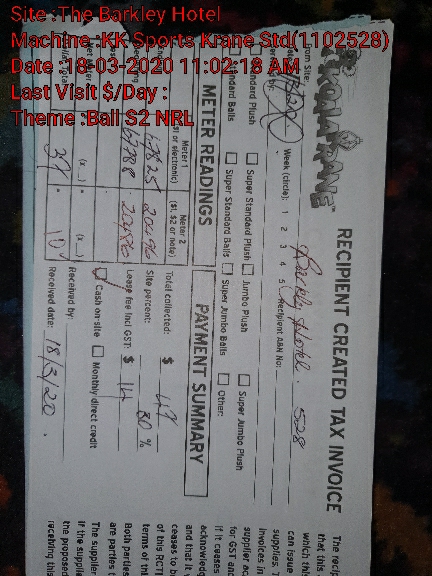 Site :The Barkley Hotel
Machine :KK Sports Krane Std(1102528)
Date :18-03-2020 11:02:18 AM
Last Visit $/Day :
Theme :Ball S2 NRL
KOALA KRANE™
RECIPIENT CREATED TAX INVOICE
Barkly Hotel. 528
Week (circle): 1 2 3 4 5
Recipient ABN No:
Standard Plush Super Standard Plush Jumbo Plush Super Jumbo Plush
Standard Balls Super Standard Balls Super Jumbo Balls Other:
METER READINGS
Meter 1
($1 or electronic)
Meter 2
($1, $2 or note)
20496
67788 20486
(x ) (x )
37 10
PAYMENT SUMMARY
Total collected: $ 47
Site percent: 30 %
Lease fee incl GST: $ 14
Cash on-site Monthly direct credit
Received by:
Received date: 18/3/20.
The recip
that this
which this
can issue
supplies. T
invoices in
supplier ac
for GST and
if it ceases
acknowled
and that it
ceases to b
of this RCTI
terms of th
Both parties
are parties t
The supplier
if the supplie
the proposed
receiving this